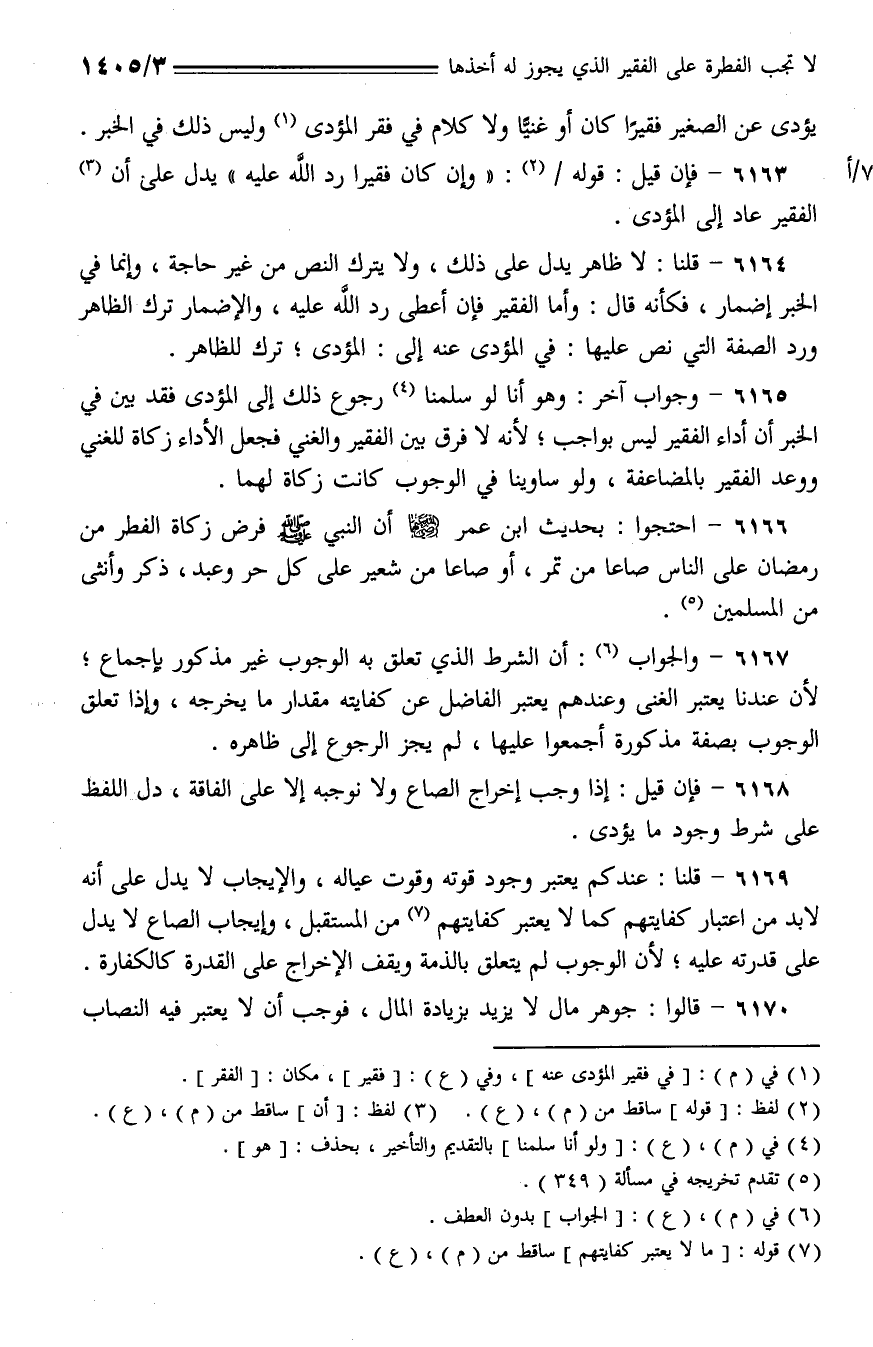 لا تجب الفطرة على الفقير الذي يجوز له أخذها ١٤٠٥/٣
يؤدى عن الصغير فقيرًا كان أو غنيًّا ولا كلام في فقر المؤدى (١) وليس ذلك في الخبر .
٧/أ
٦١٦٣ – فإن قيل : قوله / (٢) : « وإن كان فقيرا رد اللَّه عليه » يدل على أن (٣)
الفقير عاد إلى المؤدى .
٦١٦٤ – قلنا : لا ظاهر يدل على ذلك ، ولا يترك النص من غير حاجة ، وإنما في
الخبر إضمار ، فكأنه قال : وأما الفقير فإن أعطى رد اللَّه عليه ، والإضمار ترك الظاهر
ورد الصفة التي نص عليها : في المؤدى عنه إلى : المؤدى ؛ ترك للظاهر .
٦١٦٥ – وجواب آخر : وهو أنا لو سلمنا (٤) رجوع ذلك إلى المؤدى فقد بين في
الخبر أن أداء الفقير ليس بواجب ؛ لأنه لا فرق بين الفقير والغني فجعل الأداء زكاة للغني
ووعد الفقير بالمضاعفة ، ولو ساوينا في الوجوب كانت زكاة لهما .
٦١٦٦ – احتجوا : بحديث ابن عمر أن النبي ﷺ فرض زكاة الفطر من
رمضان على الناس صاعا من تمر ، أو صاعا من شعير على كل حر وعبد ، ذكر وأنثى
من المسلمين (٥) .
٦١٦٧ – والجواب (٦) : أن الشرط الذي تعلق به الوجوب غير مذكور بإجماع ؛
لأن عندنا يعتبر الغنى وعندهم يعتبر الفاضل عن كفايته مقدار ما يخرجه ، وإذا تعلق
الوجوب بصفة مذكورة أجمعوا عليها ، لم يجز الرجوع إلى ظاهره .
٦١٦٨ – فإن قيل : إذا وجب إخراج الصاع ولا نوجبه إلا على الفاقة ، دل اللفظ
على شرط وجود ما يؤدى .
٦١٦٩ – قلنا : عندكم يعتبر وجود قوته وقوت عياله ، والإيجاب لا يدل على أنه
لابد من اعتبار كفايتهم كما لا يعتبر كفايتهم (٧) من المستقبل ، وإيجاب الصاع لا يدل
على قدرته عليه ؛ لأن الوجوب لم يتعلق بالذمة ويقف الإخراج على القدرة كالكفارة .
٦١٧٠ – قالوا : جوهر مال لا يزيد بزيادة المال ، فوجب أن لا يعتبر فيه النصاب
(١) في ( م ) : [ في فقير المؤدى عنه ] ، وفي ( ع ) : [ فقير ] ، مكان : [ الفقر ] .
(٢) لفظ : [ قوله ] ساقط من ( م ) ، ( ع ) . (٣) لفظ : [ أن ] ساقط من ( م ) ، ( ع ) .
(٤) في ( م ) ، ( ع ) : [ ولو أنا سلمنا ] بالتقديم والتأخير ، بحذف : [ هو ] .
(٥) تقدم تخريجه في مسألة ( ٣٤٩ ) .
(٦) في ( م ) ، ( ع ) : [ الجواب ] بدون العطف .
(٧) قوله : [ ما لا يعتبر كفايتهم ] ساقط من ( م ) ، ( ع ) .